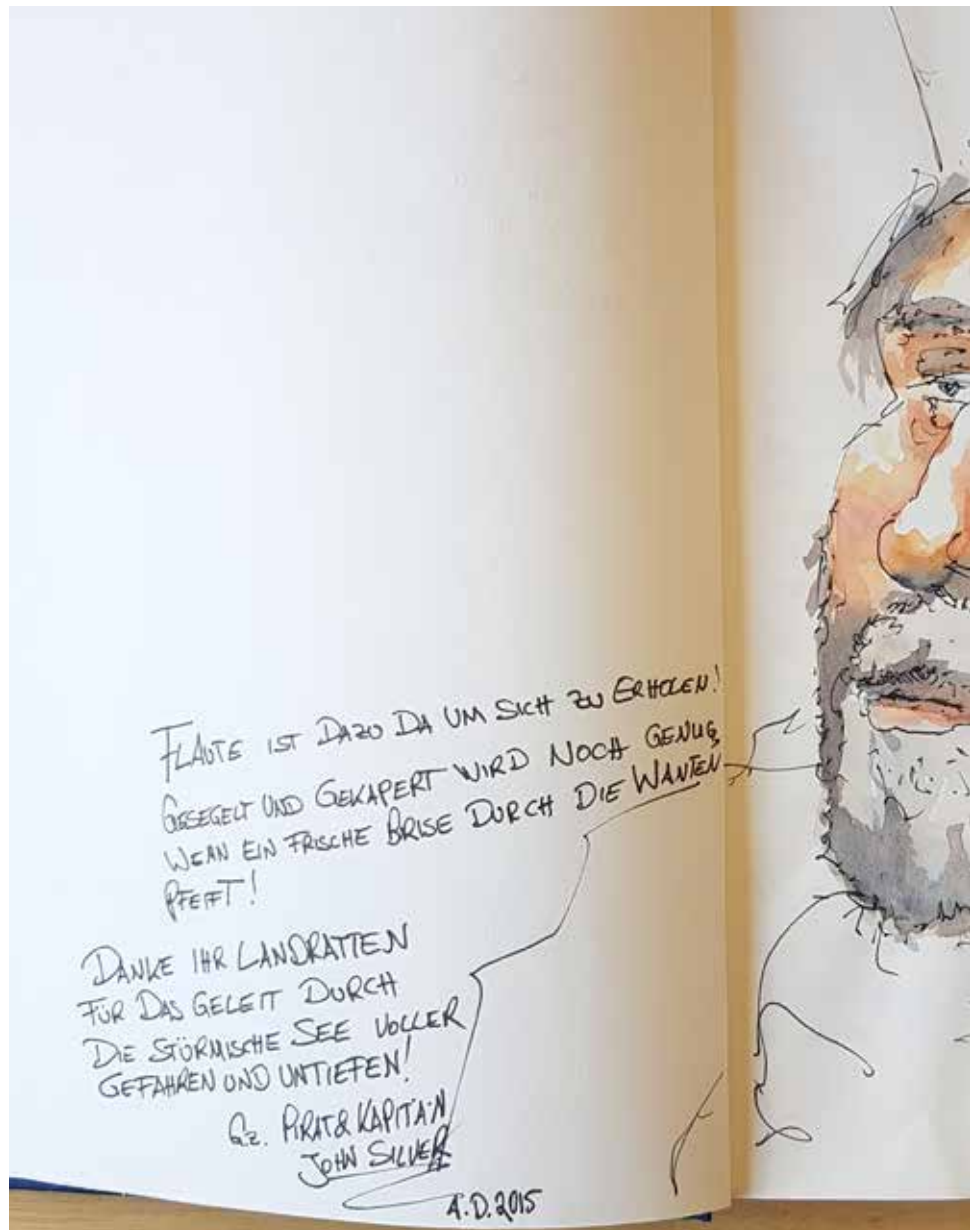 FLAUTE IST DAZU DA UM SICH ZU ERHOLEN!
GESEGELT UND GEKAPERT WIRD NOCH GENUG,
WENN EIN FRISCHE BRISE DURCH DIE WANTEN
PFEIFT!
DANKE IHR LANDRATTEN
FÜR DAS GELEIT DURCH
DIE STÜRMISCHE SEE VOLLER
GEFAHREN UND UNTIEFEN!
Gz. PIRAT & KAPITÄN
JOHN SILVER
A.D. 2015